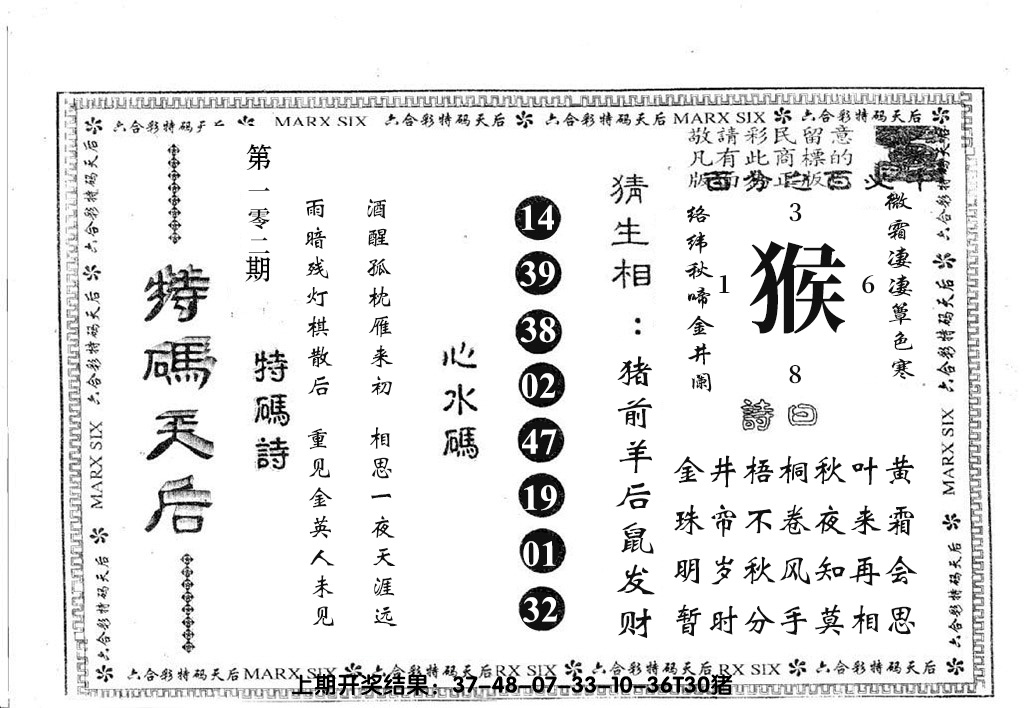 六合彩特码天后 MARX SIX 六合彩特码天后 六合彩特码天后 MARX SIX 六合彩特码天后
敬請彩民留意
凡有此商標的
版面為正版
特碼天后
第一零二期
特碼詩
雨暗残灯棋散后 重见金英人未见
酒醒孤枕雁来初 相思一夜天涯远
心水碼
14
39
38
02
47
19
01
32
猜生相：猪前羊后鼠发财
络纬秋啼金井阑
3
1 猴 6
8
微霜凄凄簟色寒
詩曰
金井梧桐秋叶黄
珠帘不卷夜来霜
明岁秋风知再会
暂时分手莫相思
六合彩特码天后
MARX SIX
六合彩特码天后
六合彩特码天后
MARX SIX
六合彩特码天后
六合彩特码天后MARX SIX 六合彩特码天后RX SIX 六合彩特码天后RX SIX 六合彩特码天后
上期开奖结果：37-48-07-33-10-36T30猪